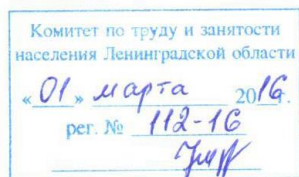 Комитет по труду и занятости
населения Ленинградской области
«01» марта 2016г.
рег. № 112-16